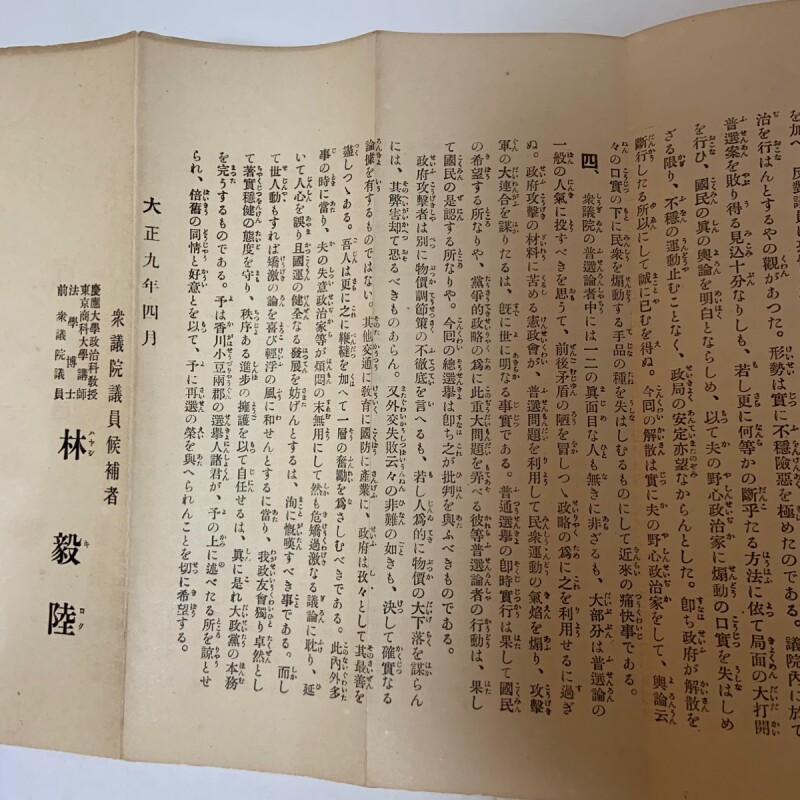 を加へ、反對
治を行はんとするやの觀があつた。形勢は實に不穩險惡を極めたのである。議院內に於て
普選案を敗り得る見込十分なりしも、若し更に何等かの斷乎たる方法に依て局面の大打開
を行ひ、國民の眞の輿論を明白とならしめ、以て夫の野心政治家に煽動の口實を失はしめ
ざる限り、不穩の運動止むことなく、政局の安定亦望なからんとした。卽ち政府が解散を
斷行したる所以にして誠に已むを得ぬ。今回の解散は實に夫の野心政治家をして、輿論云
々の口實の下に民衆を煽動する手品の種を失はしむるものにして近來の痛快事である。
四、衆議院の普選論者中には一二の眞面目な人も無きに非ざるも、大部分は普選論の
一般の人氣に投すべきを思うて、前後矛盾の陋を冒しつゝ政略の爲に之を利用せるに過ぎ
ぬ。政府攻擊の材料に苦める憲政會が、普選問題を利用して民衆運動の氣焰を煽り、攻擊
軍の大連合を謀りたるは、旣に世に明なる事實である。普通選擧の卽時實行は果して國民
の希望する所なりや、黨爭的政略の爲に此重大問題を弄べる彼等普選論者の行動は、果し
て國民の是認する所なりや。今回の總選擧は卽ち之が批判を與ふべきものである。
政府攻擊者は別に物價調節策の不徹底を言へるも、若し人爲的に物價の大下落を謀らん
には、其弊害却て恐るべきものあらん。又外交失敗云々の非難の如きも、決して確實なる
論據を有するものではない。其他交通に敎育に國防に產業に、政府は孜々として其最善を
盡しつゝある。吾人は更に之に鞭韃を加へて一層の奮勵を爲さしむべきである。此內外多
事の時に當り、夫の失意政治家等が煩悶の末無用にして然も危矯過激なる議論に耽り、延
いて人心を誤り且國運の健全なる發展を妨げんとするは、洵に慨嘆すべき事である。而し
て世人動もすれば矯激の論を喜び輕浮の風に和せんとするに當り、我政友會獨り卓然とし
て著實穩健の態度を守り、秩序ある進步の擁護を以て自任せるは、眞に是れ大政黨の本務
を完うするものである。予は香川小豆兩郡の選擧人諸君が、予の上に述べたる所を諒とせ
られ、倍舊の同情と好意とを以て、予に再選の榮を與へられんことを切に希望する。
大正九年四月
衆議院議員候補者
慶應大學政治科敎授
東京商科大學講師
法學博士
前衆議院議員
林毅陸
ハヤシ キ ロク